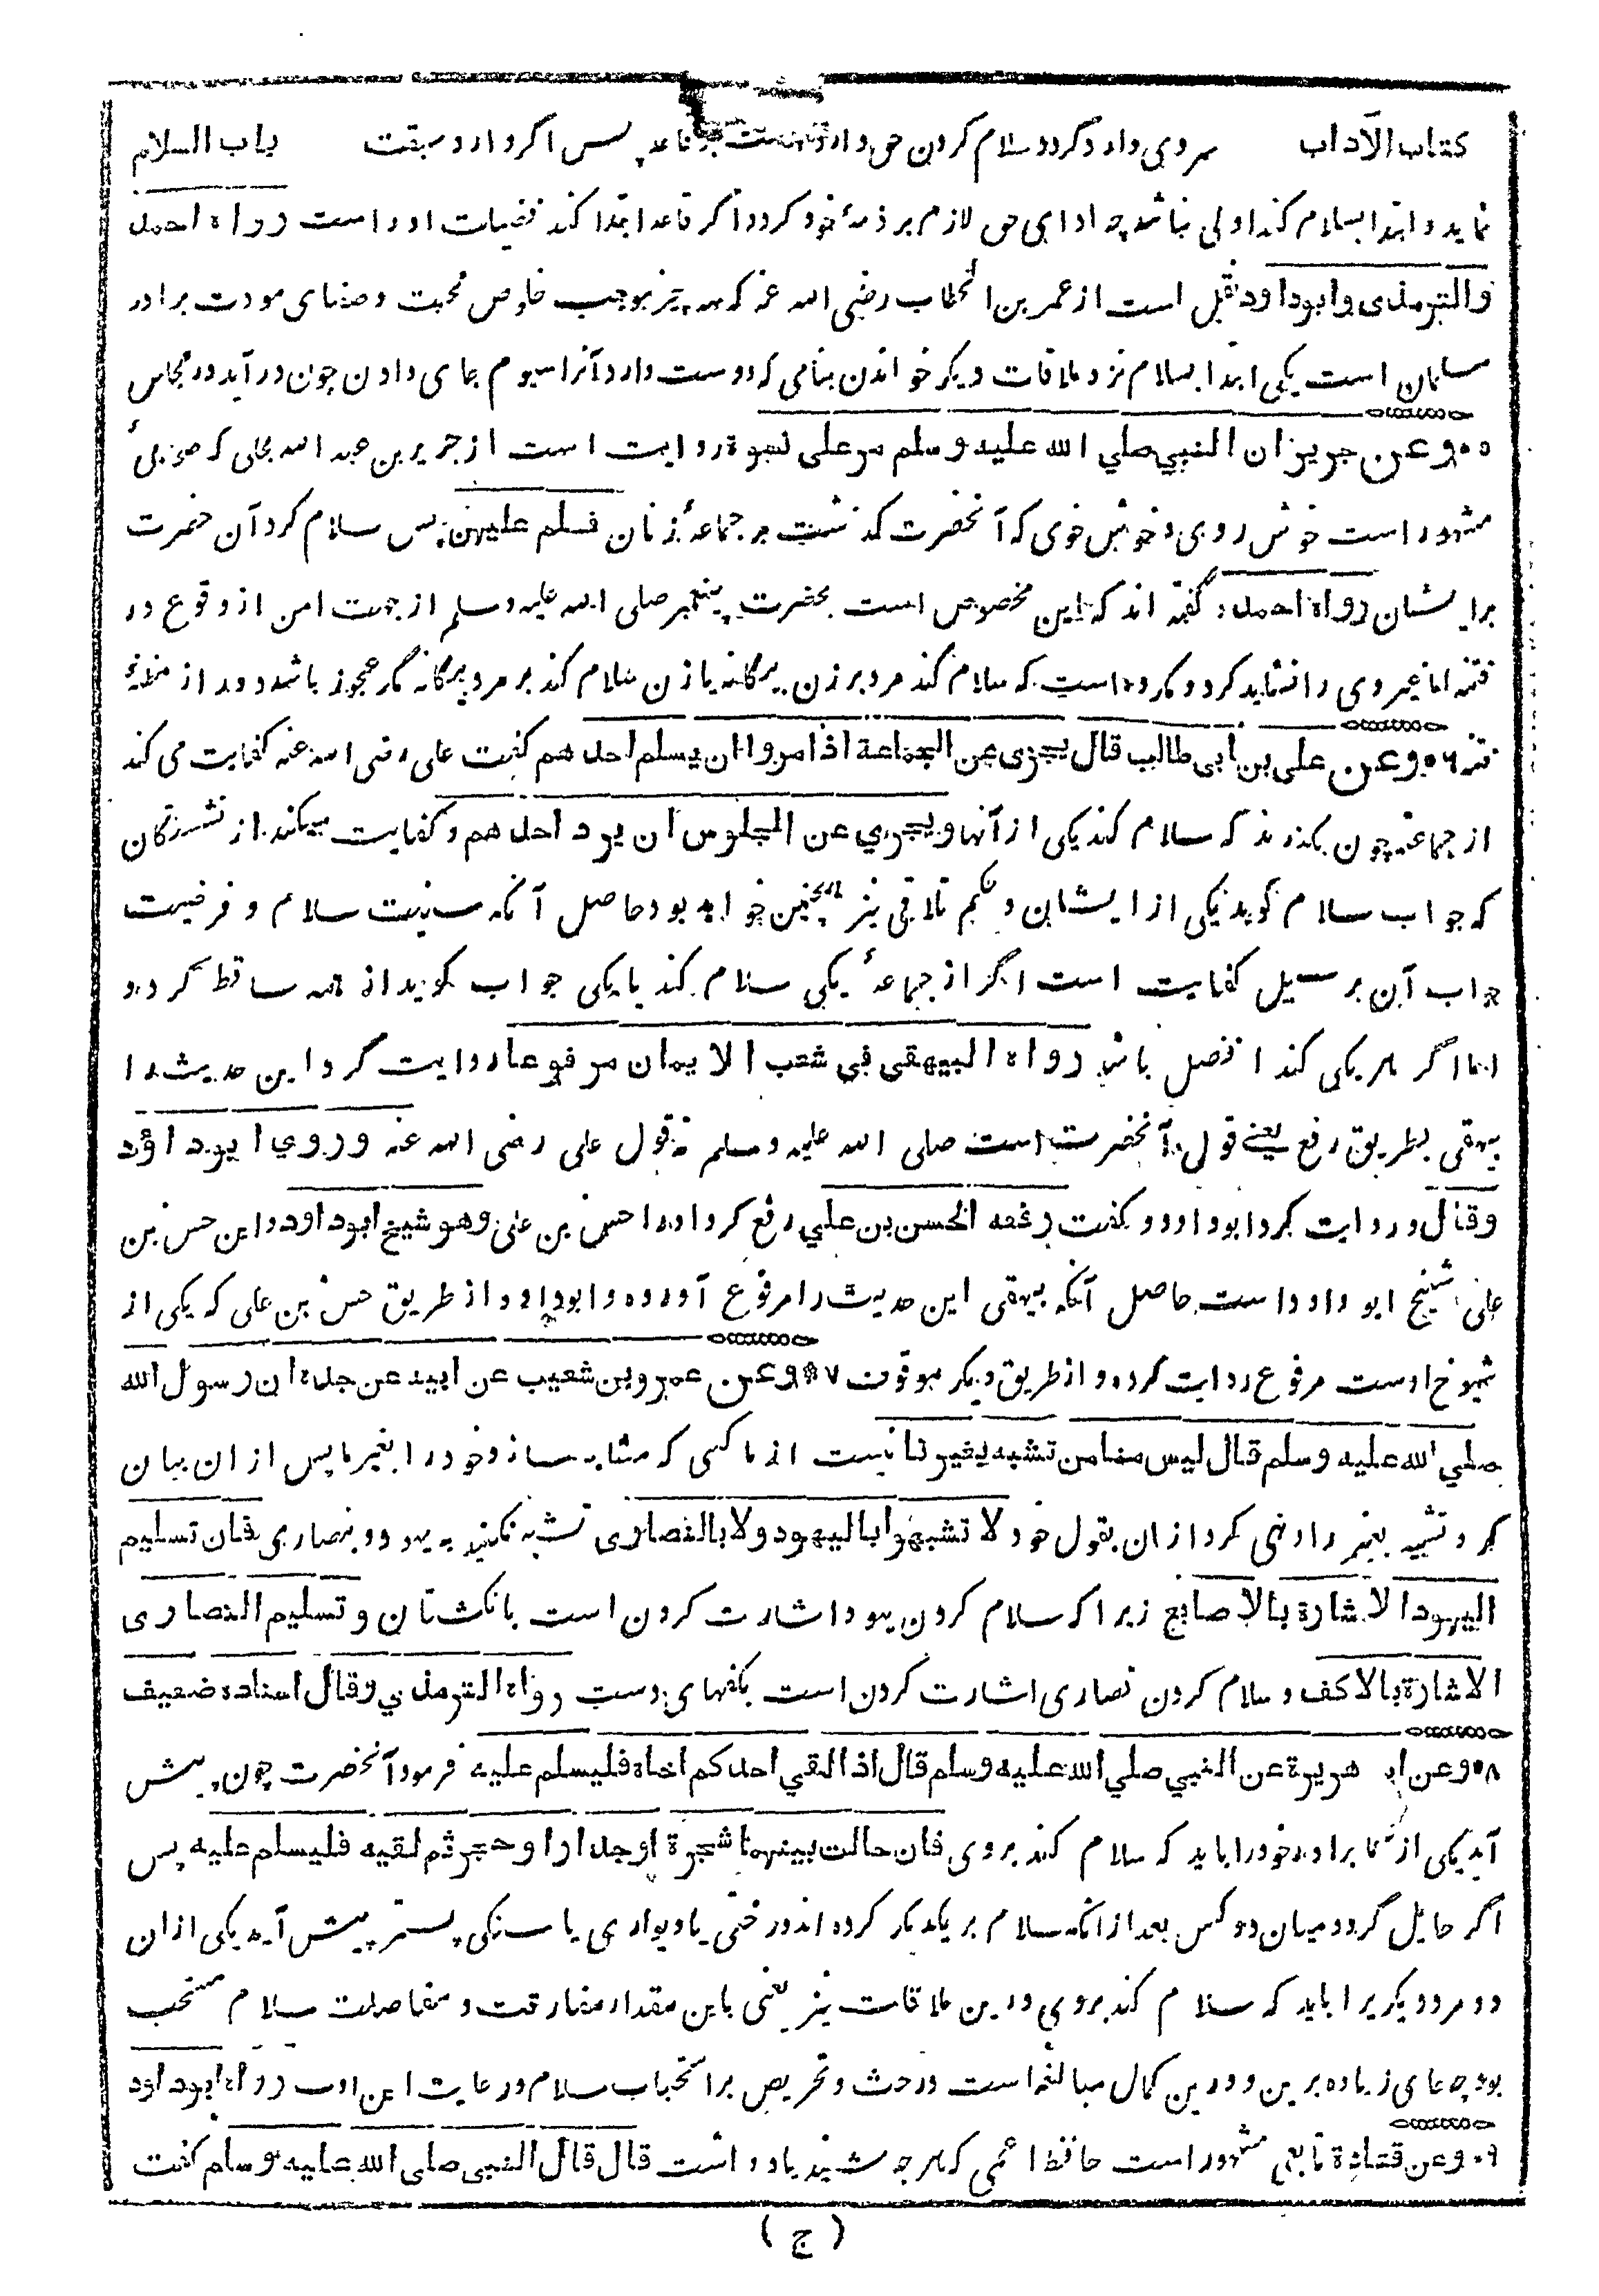 کتاب الآداب سر وی وارد گردد سلام کردن حق وارد است بر قاعد پس اگر وارد سبقت باب السلام
نماید و ابتدا بسلام کند اولی نباشد چه ادای حق لازم بر ذمهٔ خود کرد و اگر قاعد ابتدا کند فضیلت او راست رواه احمد
والترمذی وابوداود نقل است از عمر بن الخطاب رضی الله عنه که سه چیز بوجب خلوص محبت و صفای مودت برادر
مسلمان است یکی ابتدا بسلام نزد ملاقات دیگر خواندن بنامی که دوست دارد آنرا سیوم جای دادن چون در آید در مجلس
۰۵ وعن جریر ان النبي صلي الله علیه وسلم مر علی نسوة روایت است از جریر بن عبد الله بجلی که صحابیٔ
مشهور است خوش روی و خوش خوی که آنحضرت گذشت بر جماعهٔ زنان فسلم علیهن پس سلام کرد آن حضرت
بر ایشان رواه احمد و گفته اند که این مخصوص است بحضرت پیغمبر صلی الله علیه وسلم از جهت امن از وقوع در
فتنه اما غیر وی را نشاید کرد و مکروه است که سلام کند مرد بر زن بیگانه یا زن سلام کند بر مرد بیگانه مگر عجوز باشد دور از مظنهٔ
فتنه ۰۶ وعن علی بن ابی طالب قال یجزی عن الجماعة اذا مروا ان یسلم احدهم گفت علی رضی الله عنه کفایت می کند
از جماعه چون بگذرند که سلام کند یکی از آنها ویجزي عن الجلوس ان یرد احدهم و کفایت میکند از نشستگان
که جواب سلام گوید یکی از ایشان و حکم تلاقی نیز همچنین خواهد بود حاصل آنکه سنیت سلام و فرضیت
جواب آن بر سبیل کفایت است اگر از جماعهٔ یکی سلام کند یا یکی جواب گوید از همه ساقط گردد
اما اگر هر یکی کند افضل باشد رواه البیهقی في شعب الایمان مرفوعا روایت کرد این حدیث را
بیهقی بطریق رفع یعنے قول آنحضرت است صلی الله علیه وسلم نه قول علی رضی الله عنه وروي ابوداؤد
وقال و روایت کرد ابوداود و گفت رفعه الحسن بن علي رفع کرد او را حسن بن علی وهو شیخ ابوداود و این حسن بن
علی شیخ ابو داود است حاصل آنکه بیهقی این حدیث را مرفوع آورده و ابوداود از طریق حسن بن علی که یکی از
شیوخ اوست مرفوع روایت کرده و از طریق دیگر موقوف ۰۷ وعن عمرو بن شعیب عن ابیه عن جده ان رسول الله
صلي الله علیه وسلم قال لیس منا من تشبه بغیرنا نیست از ما کسی که مشابه سازد خود را بغیر ما پس ازان بیان
کرد تشبیه بغیر را و نهی کرد ازان بقول خود لا تشبهوا بالیهود ولا بالنصاری تشبه نکنید به یهود و بنصاری فان تسلیم
الیهود الاشارة بالاصابع زیرا که سلام کردن یهود اشارت کردن است بانگشتان وتسلیم النصاری
الاشارة بالاکف و سلام کردن نصاری اشارت کردن است بکفهای دست رواه الترمذي وقال اسناده ضعیف
۰۸ وعن ابي هریرة عن النبي صلي الله علیه وسلم قال اذا لقي احدکم اخاه فلیسلم علیه فرمود آنحضرت چون پیش
آید یکی از شما برادر خود را باید که سلام کند بروی فان حالت بینهما شجرة او جدار او حجر ثم لقیه فلیسلم علیه پس
اگر حایل گردد میان دو کس بعد از انکه سلام بر یکدیگر کرده اند درختی یا دیواری یا سنگی پستر پیش آید یکی ازان
دو مرد دیگریرا باید که سلام کند بروی درین ملاقات نیز یعنی باین مقدار مفارقت و مفاصلت سلام مستحب
بود چه جای زیاده برین و درین کمال مبالغه است در حث و تحریص بر استحباب سلام و رعایت این ادب رواه ابوداود
۰۹ وعن قتادة تابعی مشهور است حافظ اعمی که هر چه شنید یاد داشت قال قال النبی صلی الله علیه وسلم گفت
( ج )